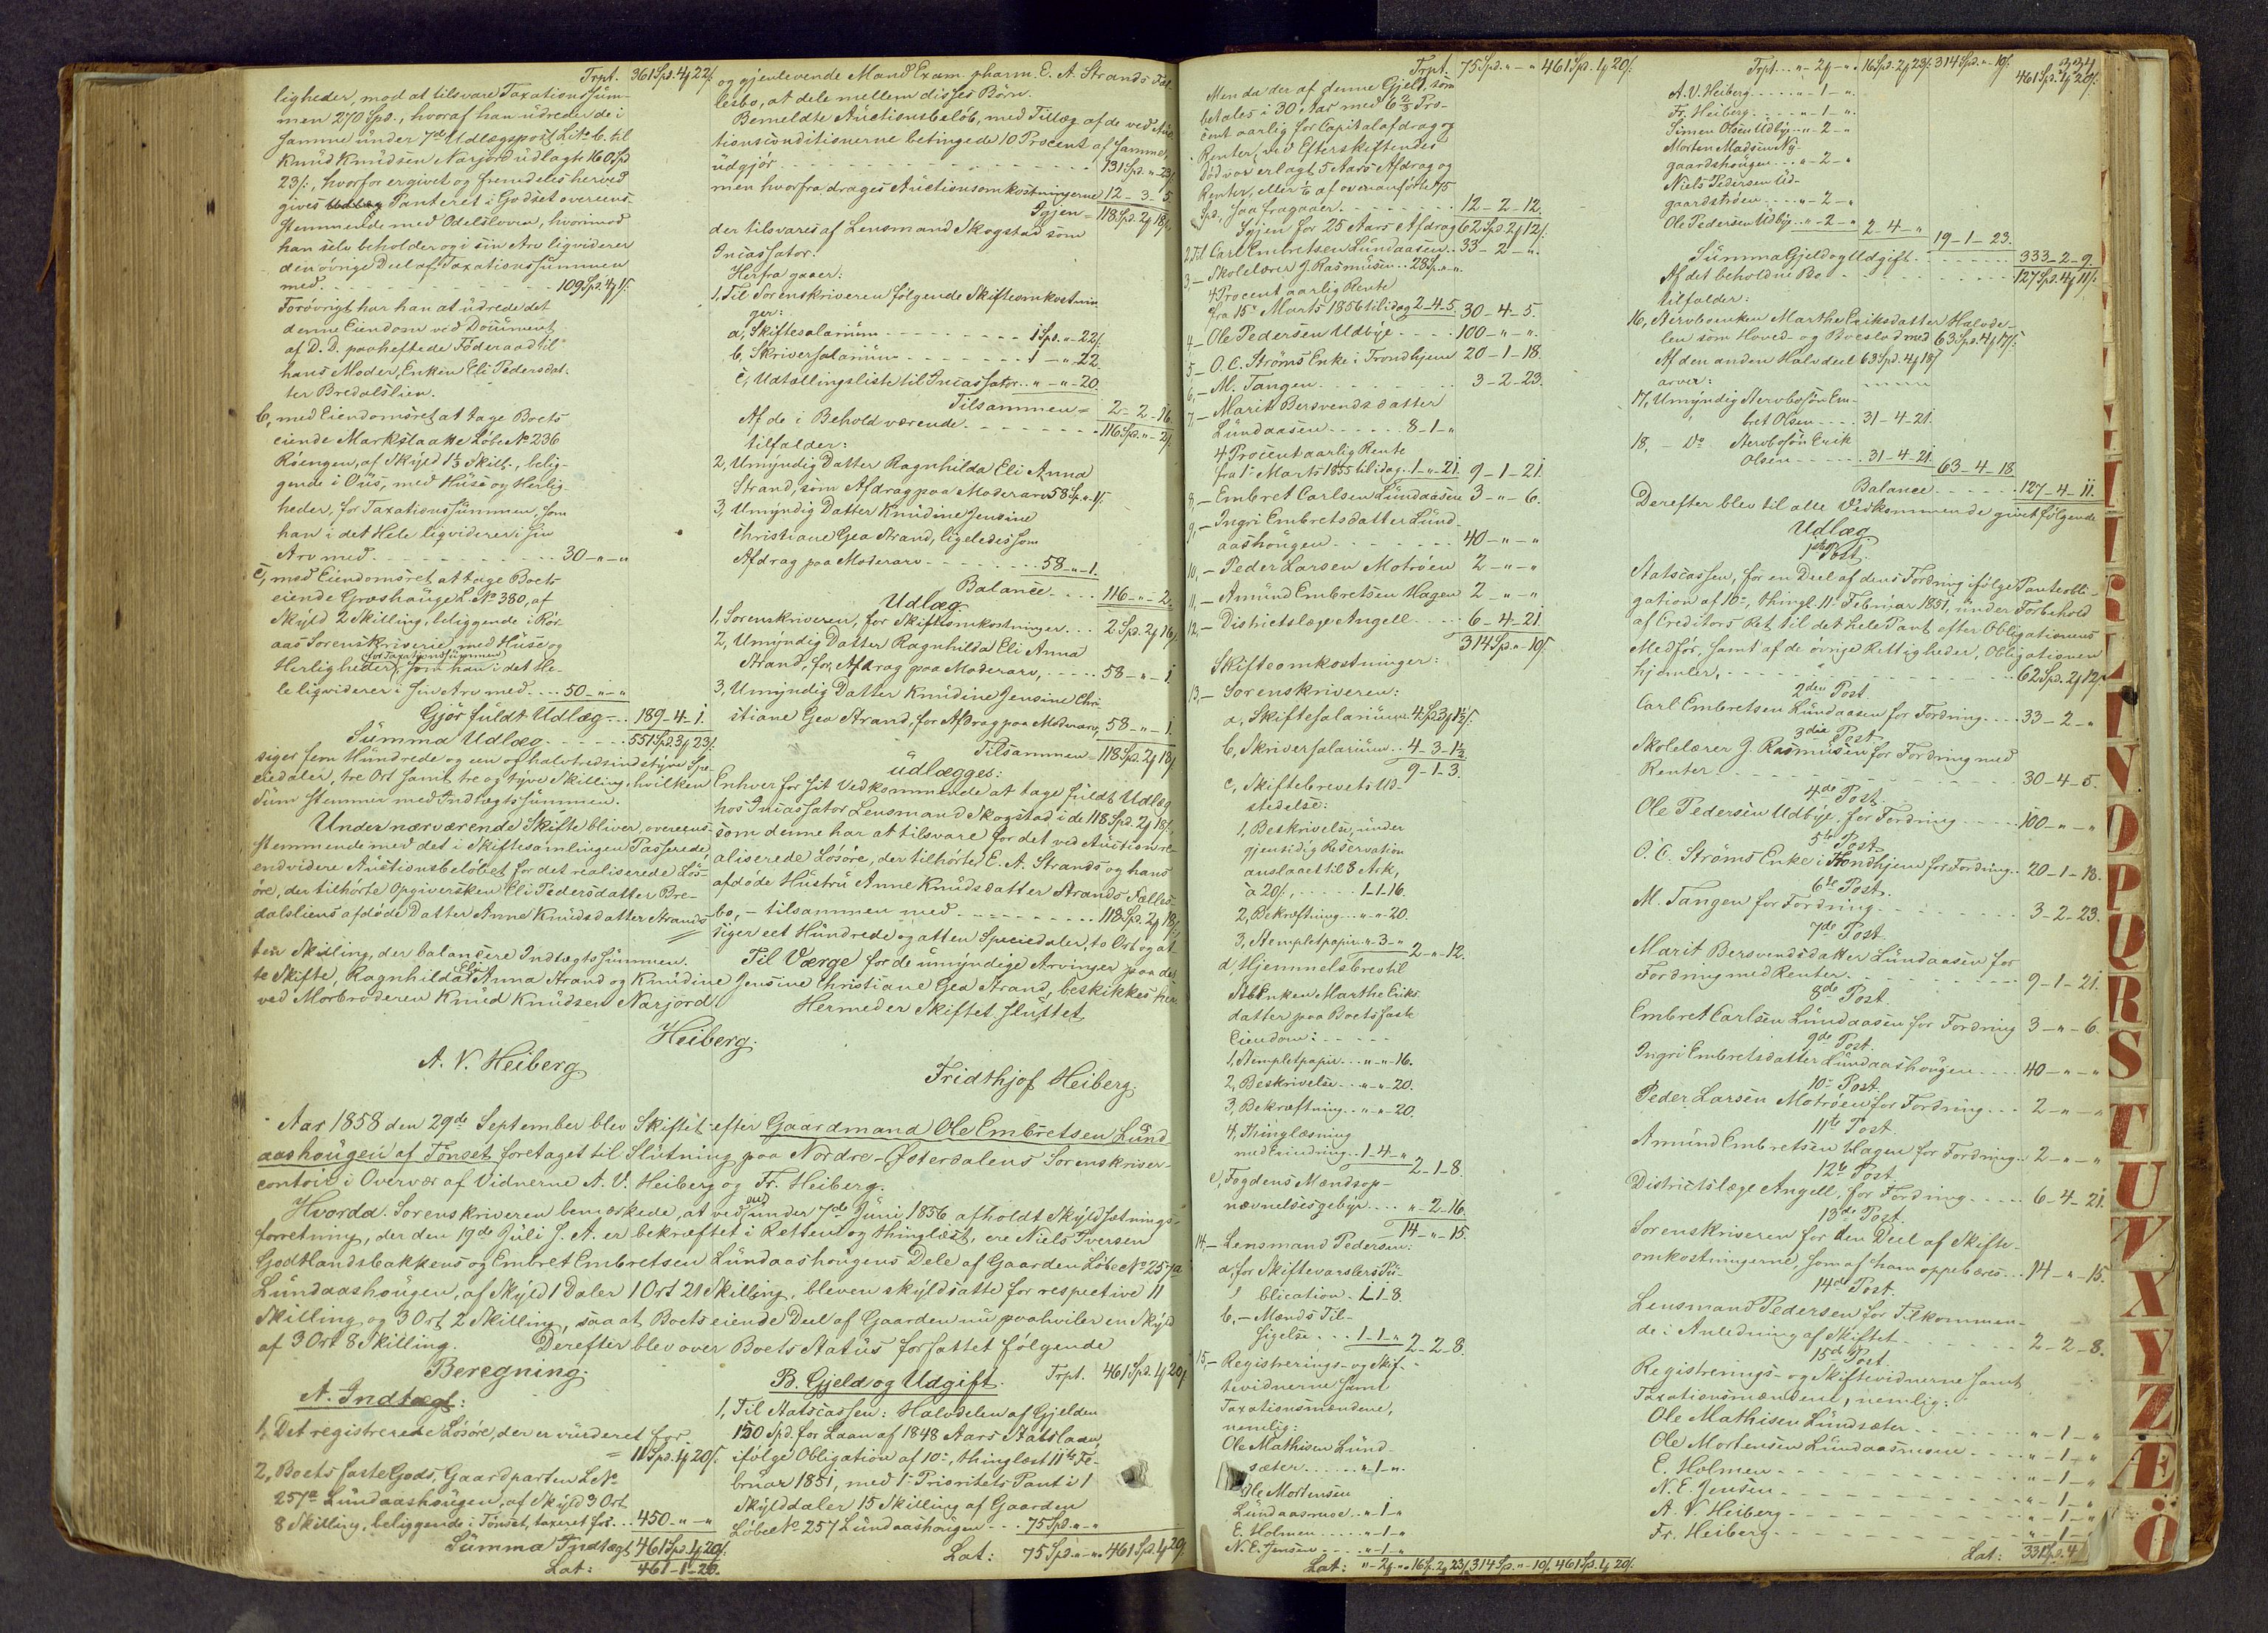 Trpt. 361 Spd. 4 ₰ 22 /:
ligheder, mod at tilsvare Taxationssum-
men 270 Spd., hvoraf han udreder de i
samme under 7de Udlægspost Litr. b. til
Knud Knudsen Narjord udlagte 160 Spd
23 /:, hvorfor er givet og fremdeles herved
gives Panteret i Godset overens-
stemmende med Odelsloven, hvorimod
han selv beholder og i sin Arv ligviderer
den övrige Deel af Taxationssummen
med 109 Spd. 4 ₰ 1 /:
Forövrigt har han at udrede det
denne Eiendom ved Document
af D. D. paaheftede Föderaad til
hans Moder, Enken Eli Pedersdat-
ter Bredalslien.
b, med Eiendomsret at tage Boets
eiende Markslaatte Löbe No 236
Röengen, af Skyld 1⅓ Skill., belig-
gende i Ous, med Huse og Herlig-
heder, for Taxationssummen, som
han i det Hele ligviderer i sin
Arv med 30 - " - "
c, med Eiendomsret at tage Boets
eiende Græshauge L. No 380, af
Skyld 2 Skilling, beliggende i Rör-
aas Sorenskriverie, med Huse og
Herligheder, for Taxationssummen, som han i det He-
le ligviderer i sin Arv med 50 - " - "
Gjör fuldt Udlæg = 189 - 4 - 1.
Summa Udlæg 551 Spd. 3 ₰ 23 /:
siger fem Hundrede og een og halvtredsindstyve Spe-
ciedaler, tre Ort samt tre og tyve Skilling, hvilken
Sum stemmer med Indtægtssummen.
Under nærværende Skifte bliver, overeens-
stemmende med det i Skiftesamlingen Passerede,
endvidere Auctionsbelöbet for det realiserede Lös-
öre, der tilhörte Opgiversken Eli Pedersdatter Bre-
dalsliens afdöde Datter Anne Knudsdatter Strands
og gjenlevende Mand Exam. pharm. E. A. Strands Fæl-
lesbo, at dele mellem disses Börn.
Bemeldte Auctionsbelöb, med Tillæg af de ved Auc-
tionsconditionerne betingede 10 Procent af samme,
udgjör 131 Spd. " - 23 /:
men hvorfra drages Auctionsomkostningerne 12 - 3 - 5.
Igjen = 118 Spd. 2 ₰ 18 /:
der tilsvares af Lensmand Skogstad som
Incassator.
Herfra gaaer:
1, Til Sorenskriveren fölgende Skifteomkostnin-
ger:
a, Skiftesalarium 1 Spd. " - 22 /:
b, Skriversalarium 1 - " - 22.
c, Udtællingsliste til Incassator " - " - 20.
Tilsammen = 2 - 2 - 16.
Af de i Behold værende 116 Spd. " - 2 /:
tilfalder:
2, Umyndig Datter Ragnhilda Eli Anna
Strand, som Afdrag paa Moderarv 58 Sp. " - 1 /:
3, Umyndig Datter Knudine Jensine
Christiane Gea Strand, ligeledes som
Afdrag paa Moderarv 58 - " - 1.
Balance 116 - " - 2.
Udlæg
1, Sorenskriveren, for Skifteomkostninger 2 Spd. 2 ₰ 16 /:
2, Umyndig Datter Ragnhilda Eli Anna
Strand, for Afdrag paa Moderarv, 58 - " - 1.
3, Umyndig Datter Knudine Jensine Chri-
stiane Gea Strand, for Afdrag paa Moderarv, 58 - " - 1.
Tilsammen = 118 Spd. 2 ₰ 18 /:
udlægges:
Enhver for sit Vedkommende at tage fuldt Udlæg
hos Incassator Lensmand Skogstad i de 118 Spd. 2 ₰ 18 /:,
som denne har at tilsvare for det ved Auction re-
aliserede Lösöre, der tilhörte E. A. Strands og hans
afdöde Hustru Anne Knudsdatter Strands Fælles-
bo, - tilsammen med 118 Spd. 2 ₰ 18 /:
siger eet Hundrede og atten Speciedaler, to Ort og at-
ten Skilling, der balancere Indtægtssummen. Til Værge for de umyndige Arvinger paa det-
te Skifte, Ragnhilda Eli Anna Strand og Knudine Jensine Christiane Gea Strand, beskikkes her-
ved Morbroderen Knud Knudsen Narjord. Hermed er Skiftet sluttet
Heiberg.
A. V. Heiberg Fridthjof Heiberg.
Aar 1858 den 29de September blev Skiftet efter Gaardmand Ole Embretsen Lund-
aashougen af Tönset foretaget til Slutning paa Nordre-Østerdalens Sorenskriver-
contoir i Overvær af Vidnerne A. V. Heiberg og Fr. Heiberg.
Hvorda. Sorenskriveren bemærkede, at ved en under 7de Juni 1856 afholdt Skyldsætnings-
forretning, der den 19de Juli s. A. er bekræftet i Retten og thinglæst, ere Niels Iversen
Godtlandsbakkens og Embret Embretsen Lundaashougens Dele af Gaarden Löbe No 257a
Lundaashougen, af Skyld 1 Daler 1 Ort 21 Skilling, bleven skyldsatte for respective 11
Skilling og 3 Ort 2 Skilling, saa at Boets eiende Deel af Gaarden nu paahviler en Skyld
af 3 Ort 8 Skilling. Derefter blev over Boets Status forfattet fölgende
Beregning.
A. Indtægt:
1, Det registrerede Lösöre, der er vurderet for
= 11 Spd. 1 ₰ 20 /:
2, Boets faste Gods, Gaardparten L. No
257a Lundaashougen, af Skyld 3 Ort
8 Skilling, beliggende i Tönset, taxeret for 450 - " - "
Summa Indtægt 461 Spd. 1 ₰ 20 /:
Lat: 461 - 1 - 20.
B. Gjeld og Udgift. Trpt. 461 Spd. 1 ₰ 20 /:
1, Til Statscassen: Halvdelen af Gjelden
150 Spd. for Laan af 1848 Aars Statslaan,
ifölge Obligation af 10:, thinglæst 11te Fe-
bruar 1851, med 1: Prioritets Pant i 1
Skylddaler 15 Skilling af Gaarden
Löbe No 257 Lundaashougen 75 Spd. " - "
Lat: 75 Spd. " - " 461 Spd. 1 ₰ 20 /:
Trpt. 75 Spd. " - " 461 Spd. 1 ₰ 20 /:
Men da der af denne Gjeld, som
betales i 30 Aar med 6⅔ Pro-
cent aarlig for Capitalafdrag og
Renter, ved Efterskiftendes
Död var erlagt 5 Aars Afdrag og
Renter, eller ⅙ af ovenanförte 75
Spd., saa fragaaer 12 - 2 - 12.
Igjen for 25 Aars Afdrag 62 Spd. 2 ₰ 12 /:
2, Til Carl Embretsen Lundaasen 33 - 2 - "
3, - Skolelærer J. Rasmusen 28 Sp. " - "
4 Procent aarlig Rente
fra 15: Marts 1856 til idag 2 - 4 - 5. 30 - 4 - 5.
4, - Ole Pedersen Udbye 100 - " - "
5, - O. C. Ströms Enke i Trondhjem 20 - 1 - 18.
6, - M. Tangen 3 - 2 - 23.
7, - Marit Bersvendsdatter
Lundaasen 8 - 1 - "
4 Procent aarlig Rente
fra 1: Marts 1855 til idag 1 - " - 21. 9 - 1 - 21.
8, - Embret Carlsen Lundaasen 3 - " - 6.
9, - Ingri Embretsdatter Lund-
aashougen 40 - " - "
10, - Peder Larsen Motröen 2 - " - "
11, - Amund Embretsen Hagen 2 - " - "
12, - Districtslæge Angell 6 - 4 - 21
314 Spd. " - 10 /:
Skifteomkostninger:
13, - Sorenskriveren:
a, Skiftesalarium 4 Sp. 3 ₰ 1½ /:
b, Skriversalarium 4 - 3 - 1½
9 - 1 - 3.
c, Skiftebrevets Ud-
stedelse:
1, Beskrivelse, under
gjensidig Reservation
anslaaet til 8 Ark,
à 20 /:, 1 - 1 - 16.
2, Bekræftning " - " - 20.
3, Stempletpapir " - 3 - " 2 - " - 12.
d, Hjemmelsbrev til
Enken Marthe Eriks-
datter paa Boets faste
Eiendom:
1, Stempletpapir " - " - 16.
2, Beskrivelse " - " - 20.
3, Bekræftning " - " - 20.
4, Thinglæsning
med Erindring 1 - 4 - " 2 - 1 - 8.
e, Fogdens Mændsop-
nævnelsesgebyr " - 2 - 16.
14 - " - 15.
14, - Lensmand Pedersen:
a, for Skiftevarslers Pu-
blication 1 - 1 - 8.
b, - Mænds Til-
sigelse 1 - 1 - " 2 - 2 - 8.
15, - Registrerings- og Skif-
tevidnerne samt
Taxationsmændene,
nemlig:
Ole Mathisen Lund-
sæter " - 1 - "
Ole Mortensen
Lundaasmoe " - 1 - "
E. Holmen " - 1 - "
N. E. Jensen " - 1 - "
Lat: " - 2 ₰ - " 16 Sp. 2 ₰ 23 /: 314 Sp. " - 10 /: 461 Sp. 1 ₰ 20 /:
334
Trpt. " - 2 ₰ - " 16 Spd. 2 ₰ 23 /: 314 Spd. " - 10 /: 461 Spd. 1 ₰ 20 /:
A. V. Heiberg " - 1 - "
Fr. Heiberg " - 1 - "
Simen Olsen Udbye " - 2 - "
Morten Madsen Ny-
gaardshougen " - 2 - "
Niels Pedersen Ud-
gaardströen " - 2 - "
Ole Pedersen Udbye " - 2 - " 2 - 4 - " 19 - 1 - 23.
Summa Gjeld og Udgift 333 - 2 - 9.
Af det beholdne Bo 127 Spd. 4 ₰ 11 /:
tilfalder:
16, Stervboenken Marthe Eriksdatter Halvde-
len som Hoved- og Boeslod med 63 Spd. 4 ₰ 17 /:
Af den anden Halvdeel 63 Spd. 4 ₰ 18 /:
arver:
17, Umyndig Stervbosön Em-
bret Olsen 31 - 4 - 21.
18, - Do Stervbosön Erik
Olsen 31 - 4 - 21. 63 - 4 - 18
Balance 127 - 4 - 11.
Derefter blev til alle Vedkommende givet fölgende
Udlæg
1ste Post.
Statscassen, for en Deel af dens Fordring ifölge Panteobli-
gation af 10:, thingl. 11: Februar 1851, under Forbehold
af Creditors Ret til det hele Pant efter Obligationens
Medför, samt af de övrige Rettigheder, Obligationen
hjemler, 62 Spd. 2 ₰ 12 /:
2den Post.
Carl Embretsen Lundaasen for Fordring 33 - 2 - "
3die Post
Skolelærer J. Rasmusen for Fordring med
Renter 30 - 4 - 5.
4de Post
Ole Pedersen Udbye, for Fordring 100 - " - "
5te Post
O. C. Ströms Enke i Trondhjem for Fordring 20 - 1 - 18.
6te Post.
M. Tangen for Fordring 3 - 2 - 23.
7de Post
Marit Bersvendsdatter Lundaasen for
Fordring med Renter 9 - 1 - 21.
8de Post.
Embret Carlsen Lundaasen for Fordring 3 - " - 6.
9de Post.
Ingri Embretsdatter Lundaashougen 40 - " - "
10: Post.
Peder Larsen Motröen for Fordring 2 - " - "
11te Post.
Amund Embretsen Hagen for Fordring 2 - " - "
12te Post.
Districtslæge Angell, for Fordring 6 - 4 - 21.
13de Post.
Sorenskriveren for den Deel af Skifte-
omkostningerne, som af ham oppebæres 14 - " - 15.
14de Post.
Lensmand Pedersen for Tilkommen-
de i Anledning af Skiftet 2 - 2 - 8.
15de Post.
Registrerings- og Skiftevidnerne samt
Taxationsmændene, nemlig:
Ole Mathisen Lundsæter " - 1 - "
Ole Mortensen Lundaasmoen " - 1 - "
E. Holmen " - 1 - "
N. E. Jensen " - 1 - "
A. V. Heiberg " - 1 - "
Fr. Heiberg " - 1 - "
Lat: 331 Sp. 4
L
N
O
P
Q
R
S
T
U
V
X
Y
Z
Æ
Ö